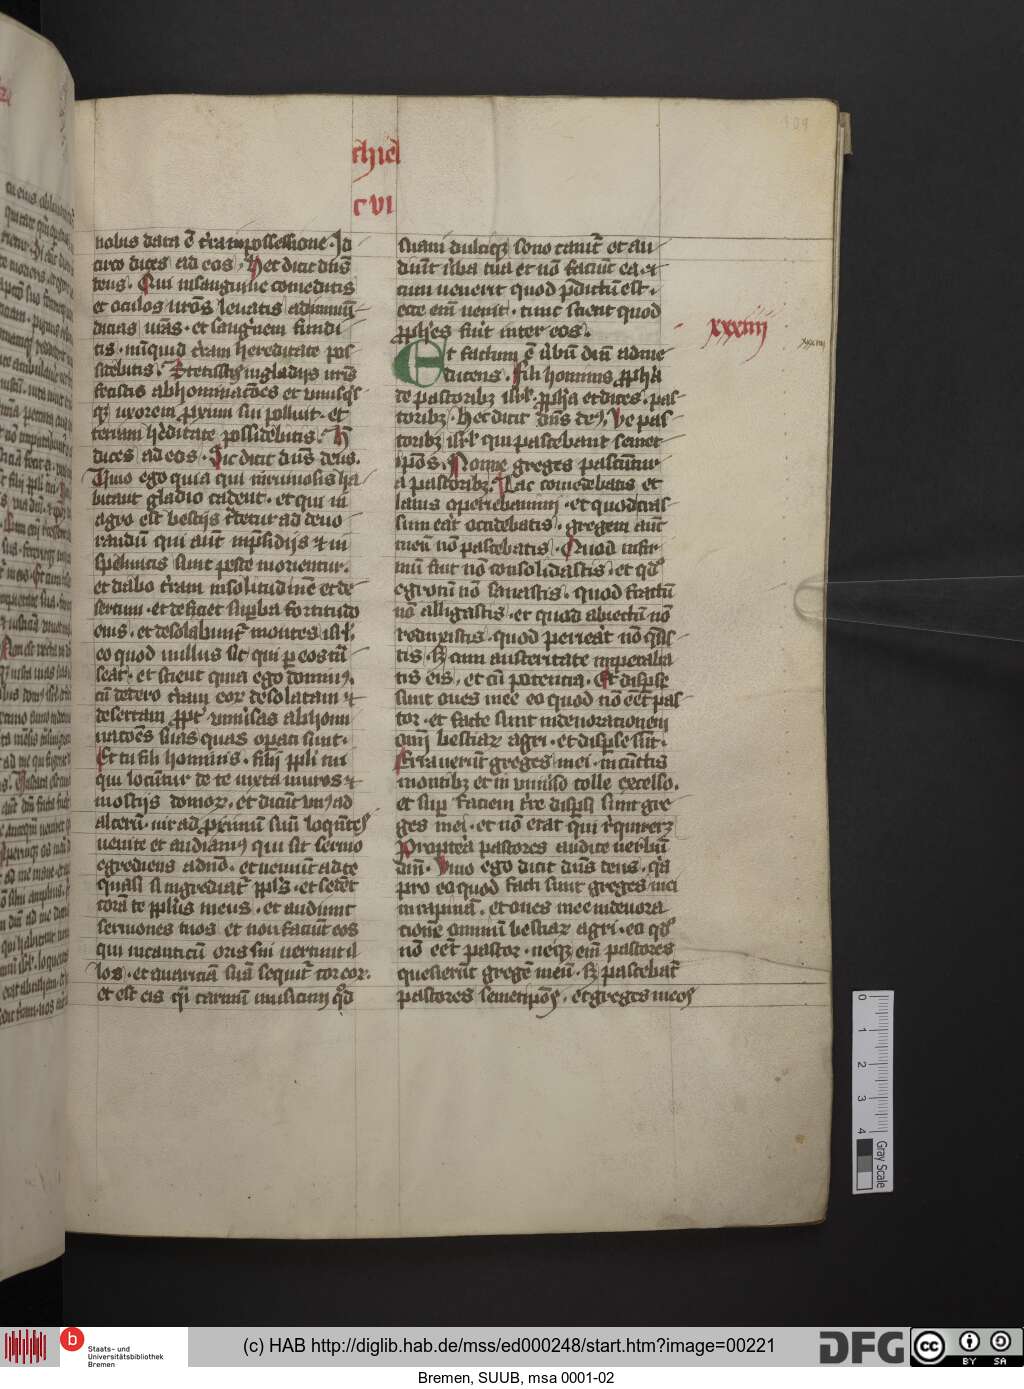 chiel
CVI
109
nobis data ē t̄ra in possessione. Id
circo dices ad eos. Hec dicit dn̄s
deus. Qui in sanguine comeditis
et oculos vr̄os leuatis ad inmūn
dicias vr̄as. et sanguinem fundi
tis. nūquid t̄ram hereditate pos
sidebitis. Stetistis in gladijs vr̄is
fecistis abhominatōes et vnusqs
qȝ vxorem proximi sui polluit. et
terram h̄editate possidebitis. H̄
dices ad eos. Sic dicit dn̄s deus.
Viuo ego quia qui in ruinosis ha
bitant gladio cadent. et qui in
agro est bestijs t̄detur ad deuo
randū qui aūt in p̄sidijs ⁊ in
speluncis sunt peste morientur.
et dabo t̄ram in solitudinē et de
sertum. et deficiet sup̄ba fortitudo
eius. et desolabunt̄ montes isrl̄.
eo quod nullus sit qui p eos tn̄
seat. et scient quia ego dominus.
cū dedero t̄ram eoꝝ desolatam ⁊
desertam ꝓpt̄ vniu̅sas abhomi
natōes suas quas opati sunt.
Et tu fili hominis. filij ppl̄i tui
qui locūtur de te iuxta muros ⁊
in ostijs domoꝝ. et dicūt vnus ad
alterū. vir ad proximū suū loquētes
uenite et audiamus qui sit sermo
egrediens a dn̄o. et ueniūt ad te
quasi si ingrediat̄ ppl̄s. et sedēt
corā te ppl̄us meus. et audiunt
sermones tuos et non faciūt eos
qui in canticū oris sui uertunt il
los. et auariciā suā sequit̄ cor eoꝝ.
et est eis qͥ carmū musicum qd̄
suaui dulciqȝ sono canit̄ et au
diūt v̄ba tua et nō faciūt ea. et
cum uenerit quod p̄dictū est.
ecce em̄ uenit. tunc scient quod
ꝓph̄es fuit inter eos.
Et factum ē v̄bū dn̄i ad me
dicens. Fili hominis ꝓph̄a
de pastoribȝ isrl̄. ꝓph̄a et dices. pas
toribȝ. Hec dicit dn̄s deus. Ve pas
toribȝ isrl̄ qui pascebant semet
ip̄os. Nonne greges pascūtur
a pastoribȝ. Lac comedebatis et
lanis operiebamini. et quod cras
sum erat occidebatis. gregem aūt
meū nō pascebatis. Quod infir
mū fuit nō consolidastis. et qd̄
egrotū nō sanastis. quod fractū
nō alligastis. et quod abiectū nō
reduxistis. quod perierat nō q̄sis
tis. sȝ cum austeritate imperaba
tis eis. et cū potentia. Et disp̄se
sunt oues mee eo quod nō eēt pas
tor. et facte sunt in deuorationem
oīm bestiaꝝ agri. et disp̄se sūt.
Errauerūt greges mei. in cūctis
montibȝ et in vniu̅so colle excelso.
et sup̄ faciem t̄re disp̄si sunt gre
ges mei. et nō erat qui req̄reret
Propterea pastores audite uerbū
dn̄i. Viuo ego dicit dn̄s deus. qͣ
pro eo quod facti sunt greges mei
in rapinā. et oues mee in deuora
tionē omniū bestiaꝝ agri. eo qd̄
nō eēt pastor. neqȝ em̄ pastores
quesierūt gregē meū. sȝ pascebāt
pastores semetip̄os. et greges meos
xxxiiij
xxxiiij
0 1 2 3 4
Gray Scale
b
Staats- und
Universitätsbibliothek
Bremen
(c) HAB http://diglib.hab.de/mss/ed000248/start.htm?image=00221
DFG
cc BY SA
Bremen, SUUB, msa 0001-02